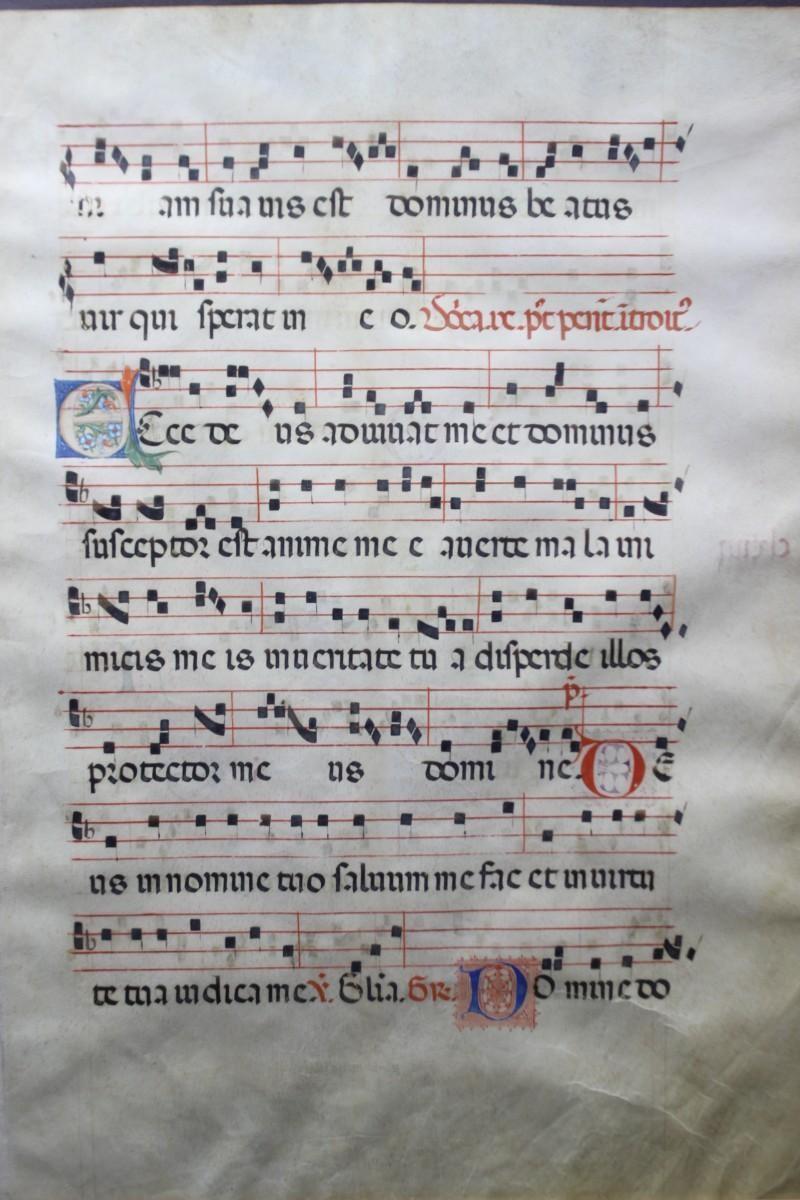 am suauis est dominus be atus
uir qui sperat in e o. Dñica .ix. p't pent. introit'
Ecce de us adiuuat me et dominus
susceptor est anime me e auerte ma la ini
micis me is in ueritate tu a disperde illos
protector me us domi ne. p̄. De
us in nomine tuo saluum me fac et in uirtu
te tua iudica me. V̄. Gl'ia. Gr. Domine do